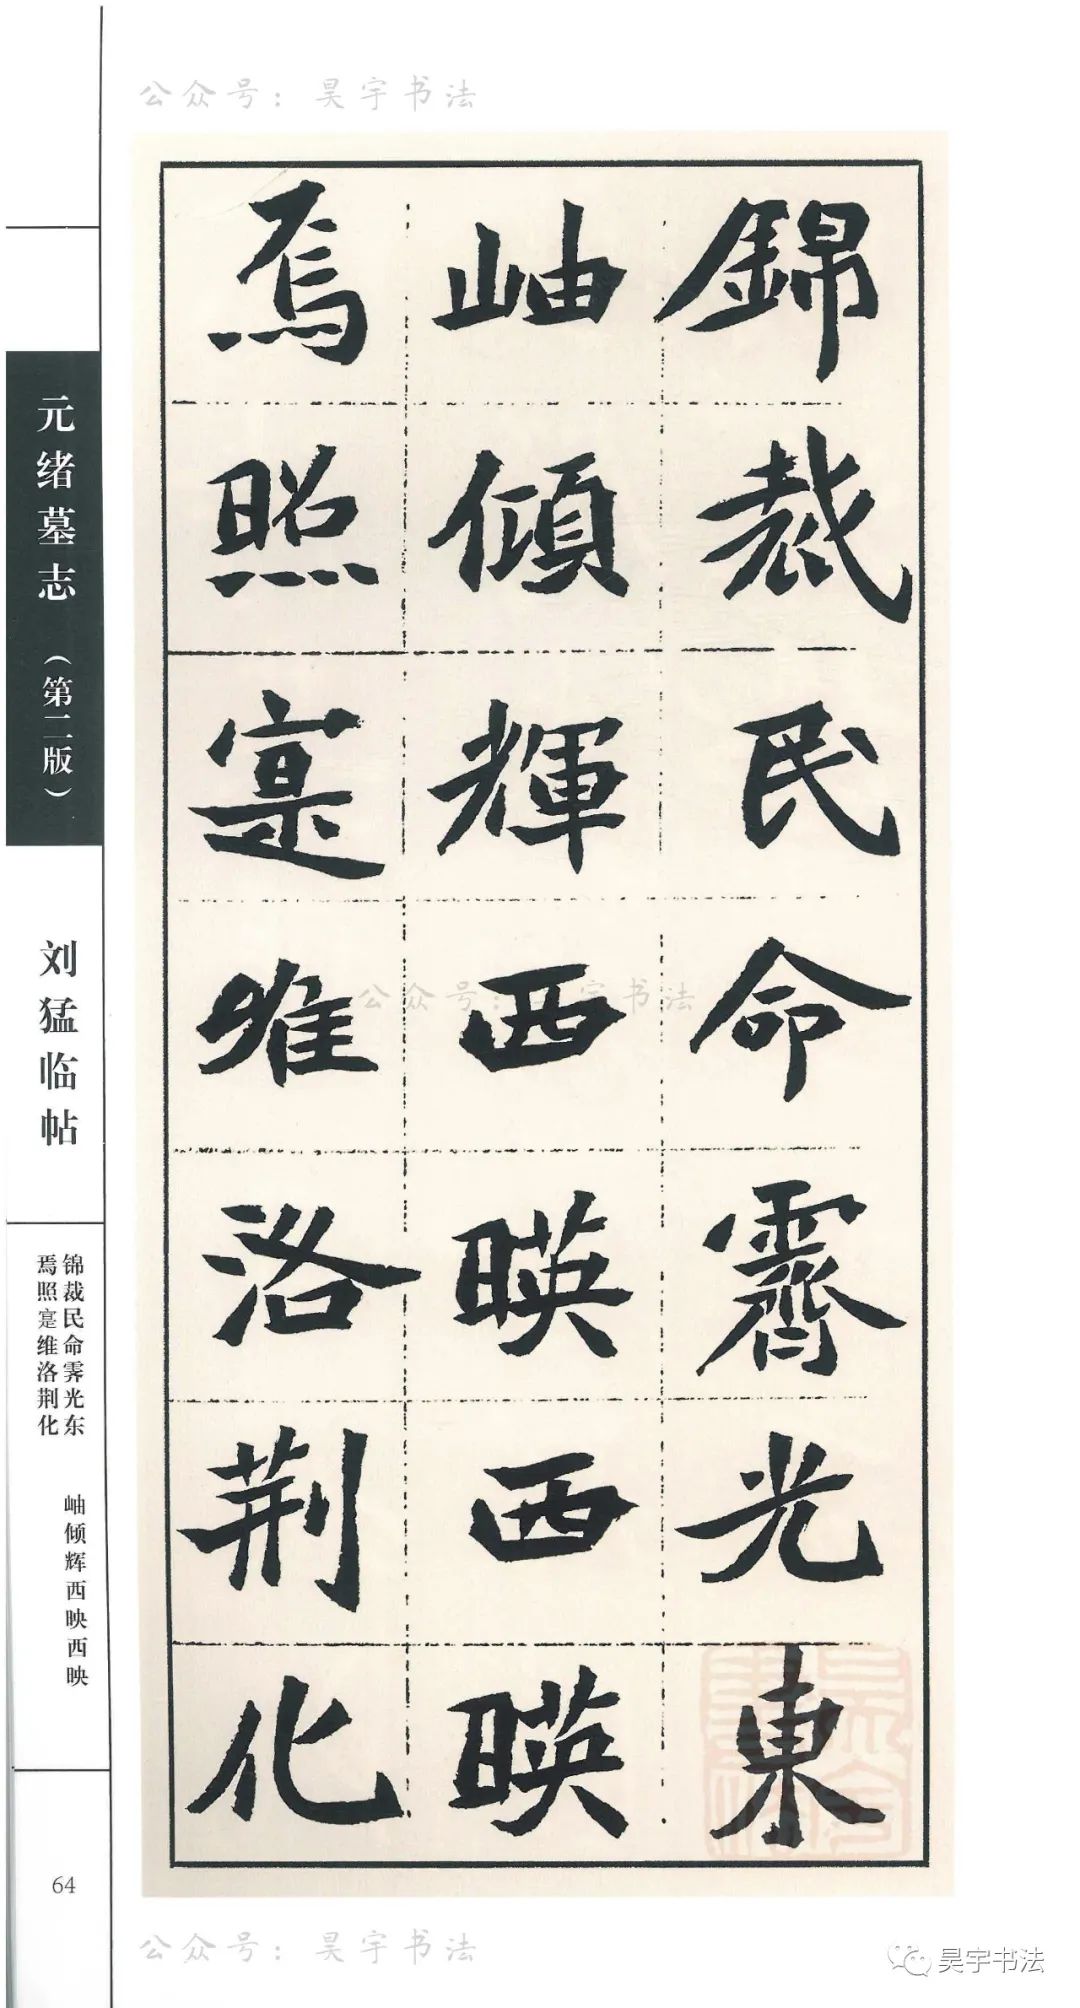 公众号：昊宇书法
錦裁民命霽光東
岫傾輝西暎西暎
焉照寔唯洛荆化
元绪墓志（第二版）
刘猛临帖
锦裁民命霁光东
岫倾辉西映西映
焉照寔维洛荆化
64
公众号：昊宇书法
公众号：昊宇书法
昊宇书法